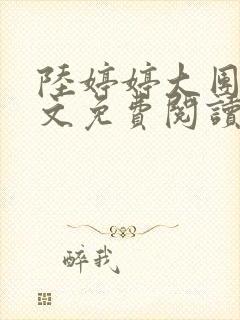 陸婷婷大團
文免費閱讀
醉我